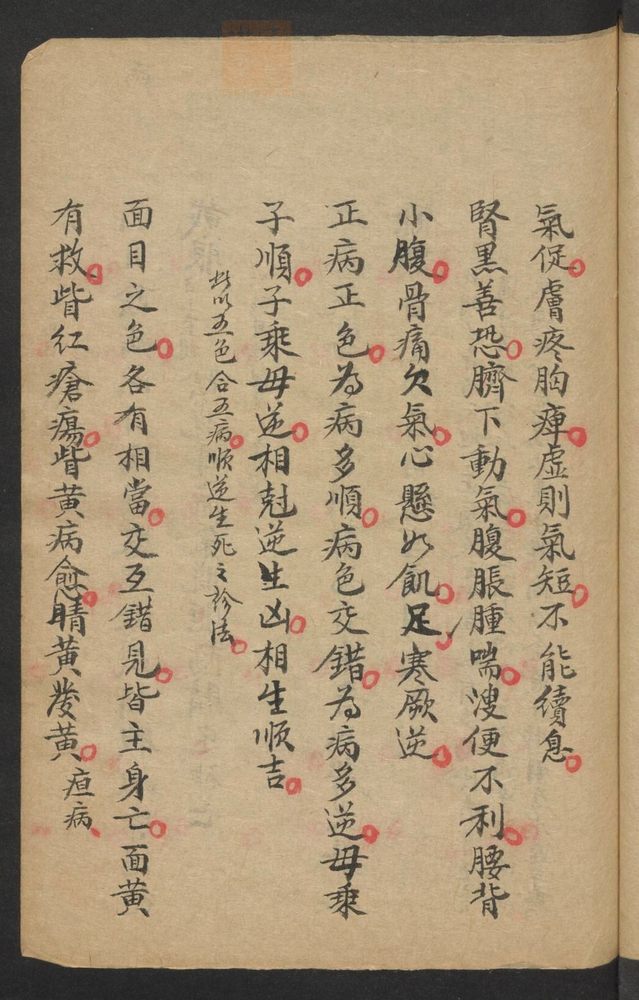 氣促膚疼胸痺虛則氣短不能續息
腎黑善恐臍下動氣腹脹腫喘溲便不利腰背
小腹骨痛欠氣心懸如飢足寒厥逆
正病正色為病多順病色交錯為病多逆母乘
子順子乘母逆相尅逆生凶相生順吉
此以五色合五病順逆生死之診法
面目之色各有相當交互錯見皆主身亡面黃
有救眥紅瘡瘍眥黃病愈睛黃發黃疸病